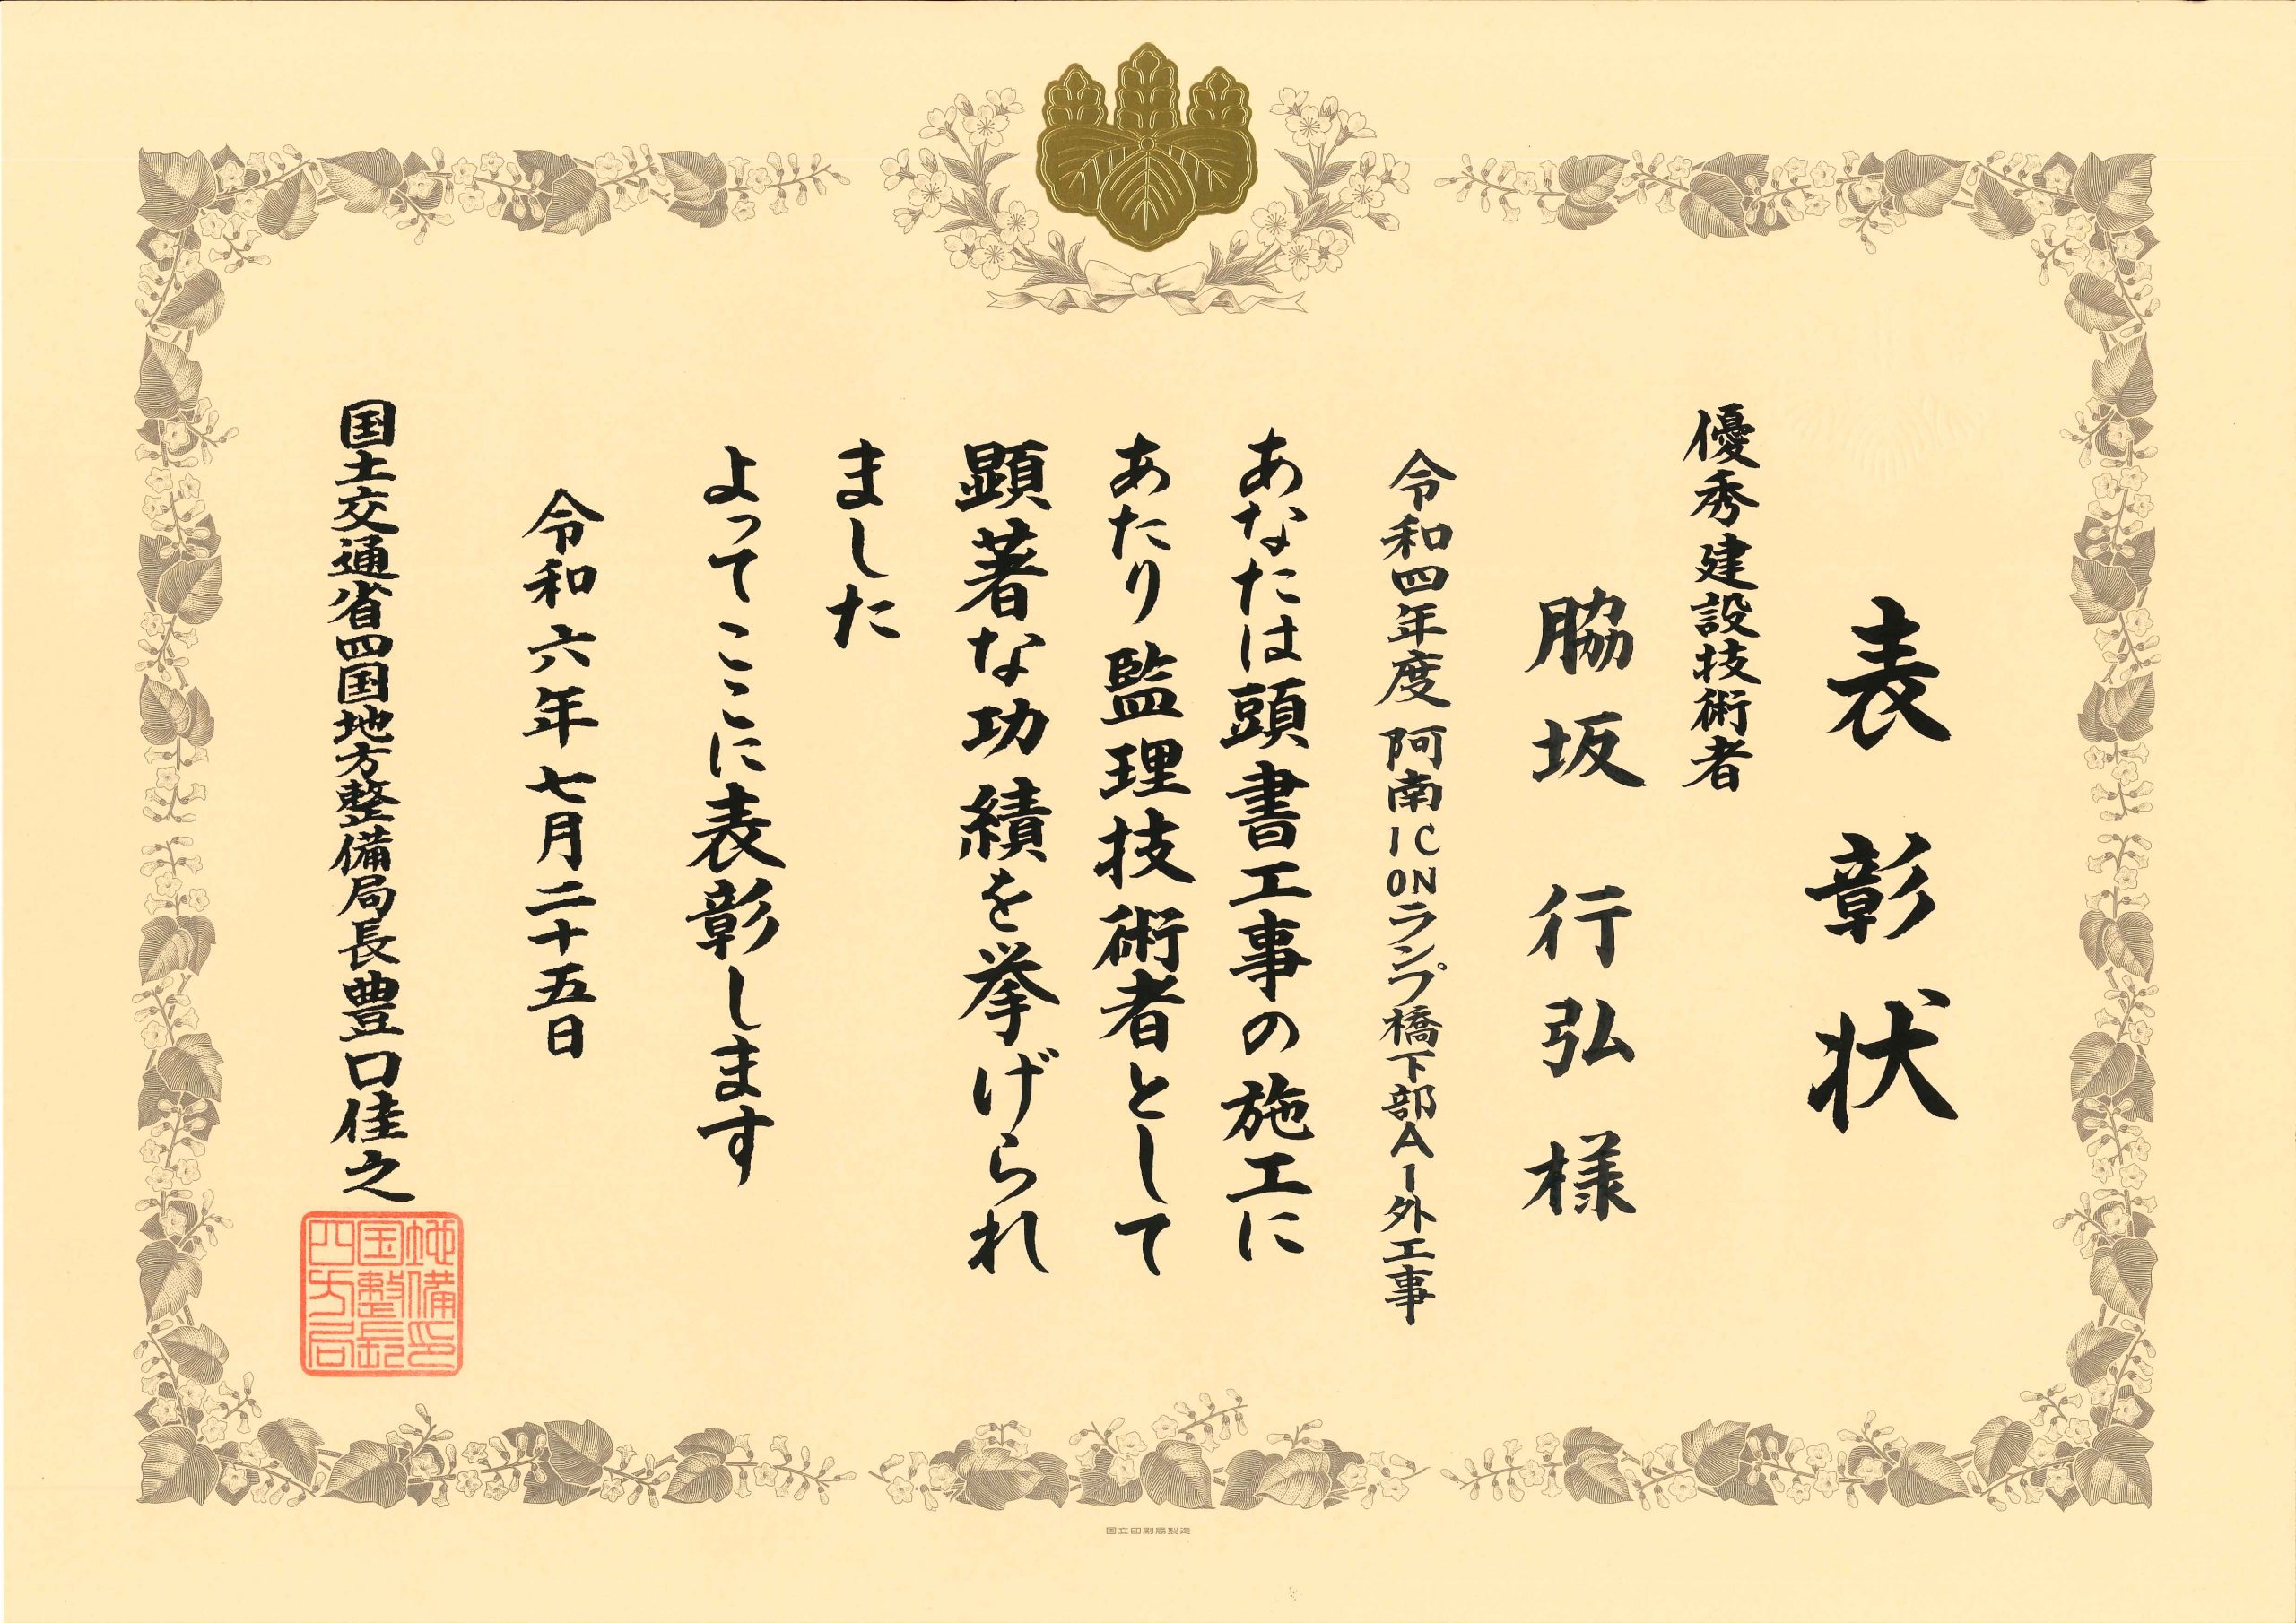 表彰状
優秀建設技術者
脇坂行弘様
令和四年度 阿南IC ONランプ橋下部A1外工事
あなたは頭書工事の施工に
あたり監理技術者として
顕著な功績を挙げられ
ました
よってここに表彰します
令和六年七月二十五日
国土交通省四国地方整備局長豊口佳之
地備印
国整長
四方局
国立印刷局製造